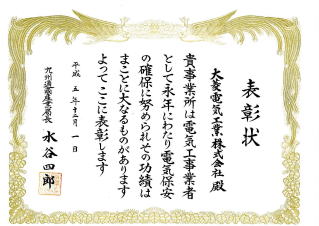 表彰状
大菱電気工業株式会社 殿
貴事業所は電気工事業者
として永年にわたり電気保安
の確保に努められその功績は
まことに大なるものがあります
よってここに表彰します
平成 五 年 十二 月 一 日
九州通商産業局長
水谷四郎